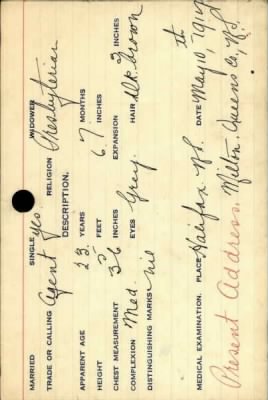 MARRIED SINGLE yes WIDOWER
TRADE OR CALLING Agent RELIGION Presbyterian
DESCRIPTION.
APPARENT AGE 23 YEARS 7 MONTHS
HEIGHT 5 FEET 6 INCHES
CHEST MEASUREMENT 36 INCHES EXPANSION 3 INCHES
COMPLEXION Med EYES Grey. HAIR Dk. Brown
DISTINGUISHING MARKS nil
MEDICAL EXAMINATION. PLACE Halifax N.S. DATE May 10th, 1917
Present Address. Milton, Queens Co, N.S.